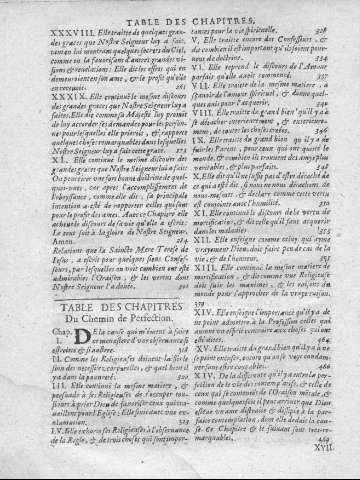 TABLE DES CHAPITRES.
XXXVIII. Elle traitte de quelques grandes graces que Nostre Seigneur luy a faites, en luy monstrant quelques secrets du Ciel, comme en la favorisant d'autres grandes visions & revelations: Elle dit les effets qui en demeuroient en son ame, & le profit qu'elle en recevoit.
XXXIX. Elle continuë le mesme discours des grandes graces que Nostre Seigneur luy a
faites. Elle dit comme sa Majesté luy promit de luy accorder ses demandes pour les personnes pour lesquelles elle prieroit, & rapporte quelques choses remarquables dans lesquelles Nostre Seigneur luy a fait cette grace. 273
XL. Elle continuë le mesme discours des grandes graces que Nostre Seigneur luy a faites
qui suit
Le tout soit à la gloire de Nostre Seigneur. Amen. 284
Relations que la Sainte Mere Terese de Jesus, a escrit pour quelques siens Confesseurs, par lesquelles on voit combien est admirable l'Oraison, & les vertus dont Nostre Seigneur l'a doüée. 301
TABLE DES CHAPITRES
Du Chemin de Perfection.
Chap. I. DE la cause qui m'émeut à faire ce monastere d'un observance si estroitte & si austere. 318
II. Comme les Religieuses doivent laisser le soin des necessitez corporelles, & quel bien il y a dans la pauvreté. 320
III. Elle continuë la mesme matiere, & persuade à ses Religieuses de s'occuper tousjours à prier Dieu de favoriser ceux qui travaillent pour l'Eglise; Elle finit avec une exclamation. 323
IV. Elle exhorte ses Religieuses à l'observance de la Regle, & de trois choses qui sont importantes pour la vie spirituelle. 328
V. Elle traitte encore des Confesseurs, & de combien il est important qu'ils soient pourveus de doctrine. 334
VI. Elle reprend le discours de l'Amour parfait qu'elle avoit commencé. 337
VII. Elle traitte de la mesme matiere, à sçavoir de l'amour spirituel, & donne quelques avis pour l'acquerir. 340
VIII. Elle traitte du grand bien qu'il y a de se détacher interieurement, & exterieurement, de toutes les choses creées. 346
IX. Du grand bien qu'il y a de fuir les Parens, pour ceux qui ont quitté le monde, & combien ils treuvent des amis plus veritables, & plus parfaits. 348
X. Elle dit qu'il ne suffit pas d'estre détaché de ce qui a esté dit, si nous ne nous détachons de nous-mesmes, & declare comme cette vertu est conjointe avec l'humilité. 350
XI. Elle continuë le discours de la vertu de mortification, & dit celle qu'il faut acquerir dans les maladies 353
XII. Elle enseigne comme celuy, qui ayme vrayement Dieu, doit faire peu de cas de la vie, & de l'honneur. 355
XIII. Elle continuë la mesme matiere de mortification, & dit comme une Religieuse doit fuir les maximes, & les raisons du monde pour s'approcher de la vraye raison. 359
XIV. Elle enseigne l'importance qu'il y a de ne point admettre à la Profession celles qui auront un esprit contraire aux choses qui ont esté dites. 464
XV. Elle traitte du grand bien qu'il y a à ne se point excuser, encore qu'on se veye condamner sans estre coupable. 466
XVI. De la difference qu'il y a entre la perfection de la vie des contemplatifs, & celle de ceux qui se contentent de l'Oraison mentale, & comme quelquefois il peut arriver que Dieu esleve une ame distraite & dissipée à la parfaite contemplation, dont elle déduit la cause. Ce Chapitre & le suivant sont tres-remarquables. 469
XVII.